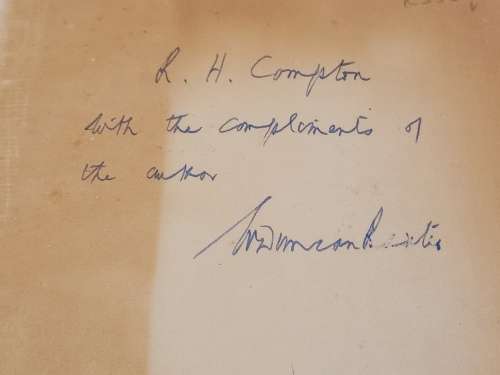 R. H. Compton
with the compliments of
the author
W Duncan